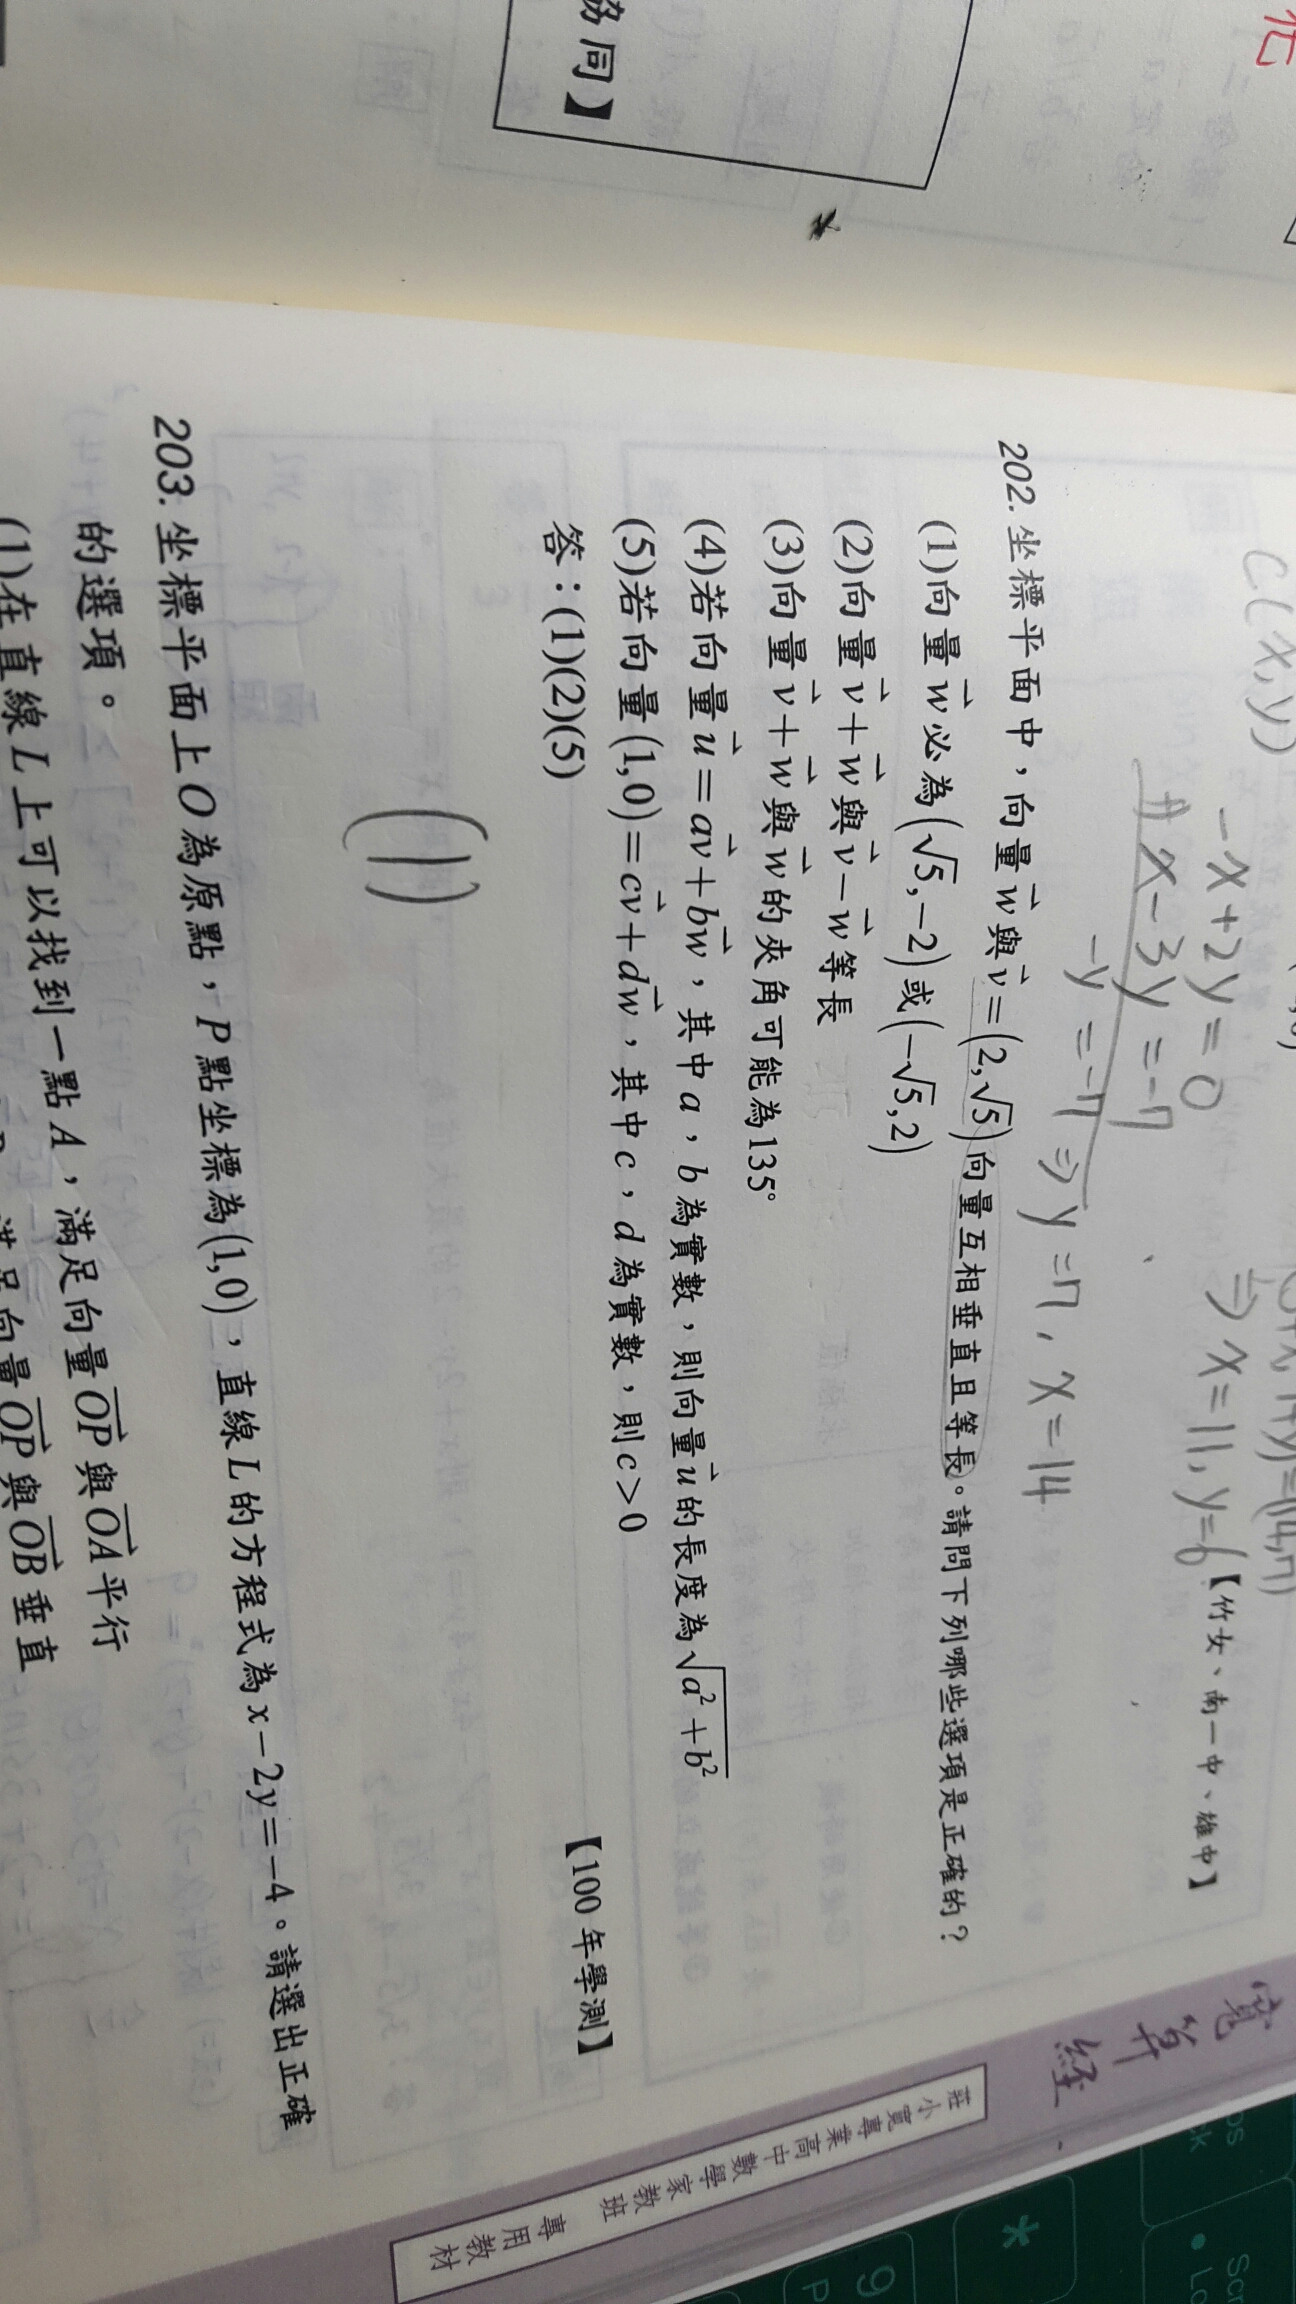 芒
協同】
C(x,y)
-x+2y=0
x-3y=-7
-y=-7 ⇒ y=7, x=-14
⇒ x=11, y=6
【竹女、南一中、雄中】
202. 坐標平面中，向量w與v=(2,√5)向量互相垂直且等長。請問下列哪些選項是正確的？
(1)向量w必為(√5,-2)或(-√5,2)
(2)向量v+w與v-w等長
(3)向量v+w與w的夾角可能為135°
(4)若向量u=av+bw，其中a，b為實數，則向量u的長度為√(a²+b²)
(5)若向量(1,0)=cv+dw，其中c，d為實數，則c>0
答：(1)(2)(5)
【100年學測】
203. 坐標平面上O為原點，P點坐標為(1,0)，直線L的方程式為x-2y=-4。請選出正確
的選項。
(1)在直線L上可以找到一點A，滿足向量OP與OA平行
滿足向量OP與OB垂直
寬算經
莊小寬專業高中數學家教班 專用教材
*
9
P